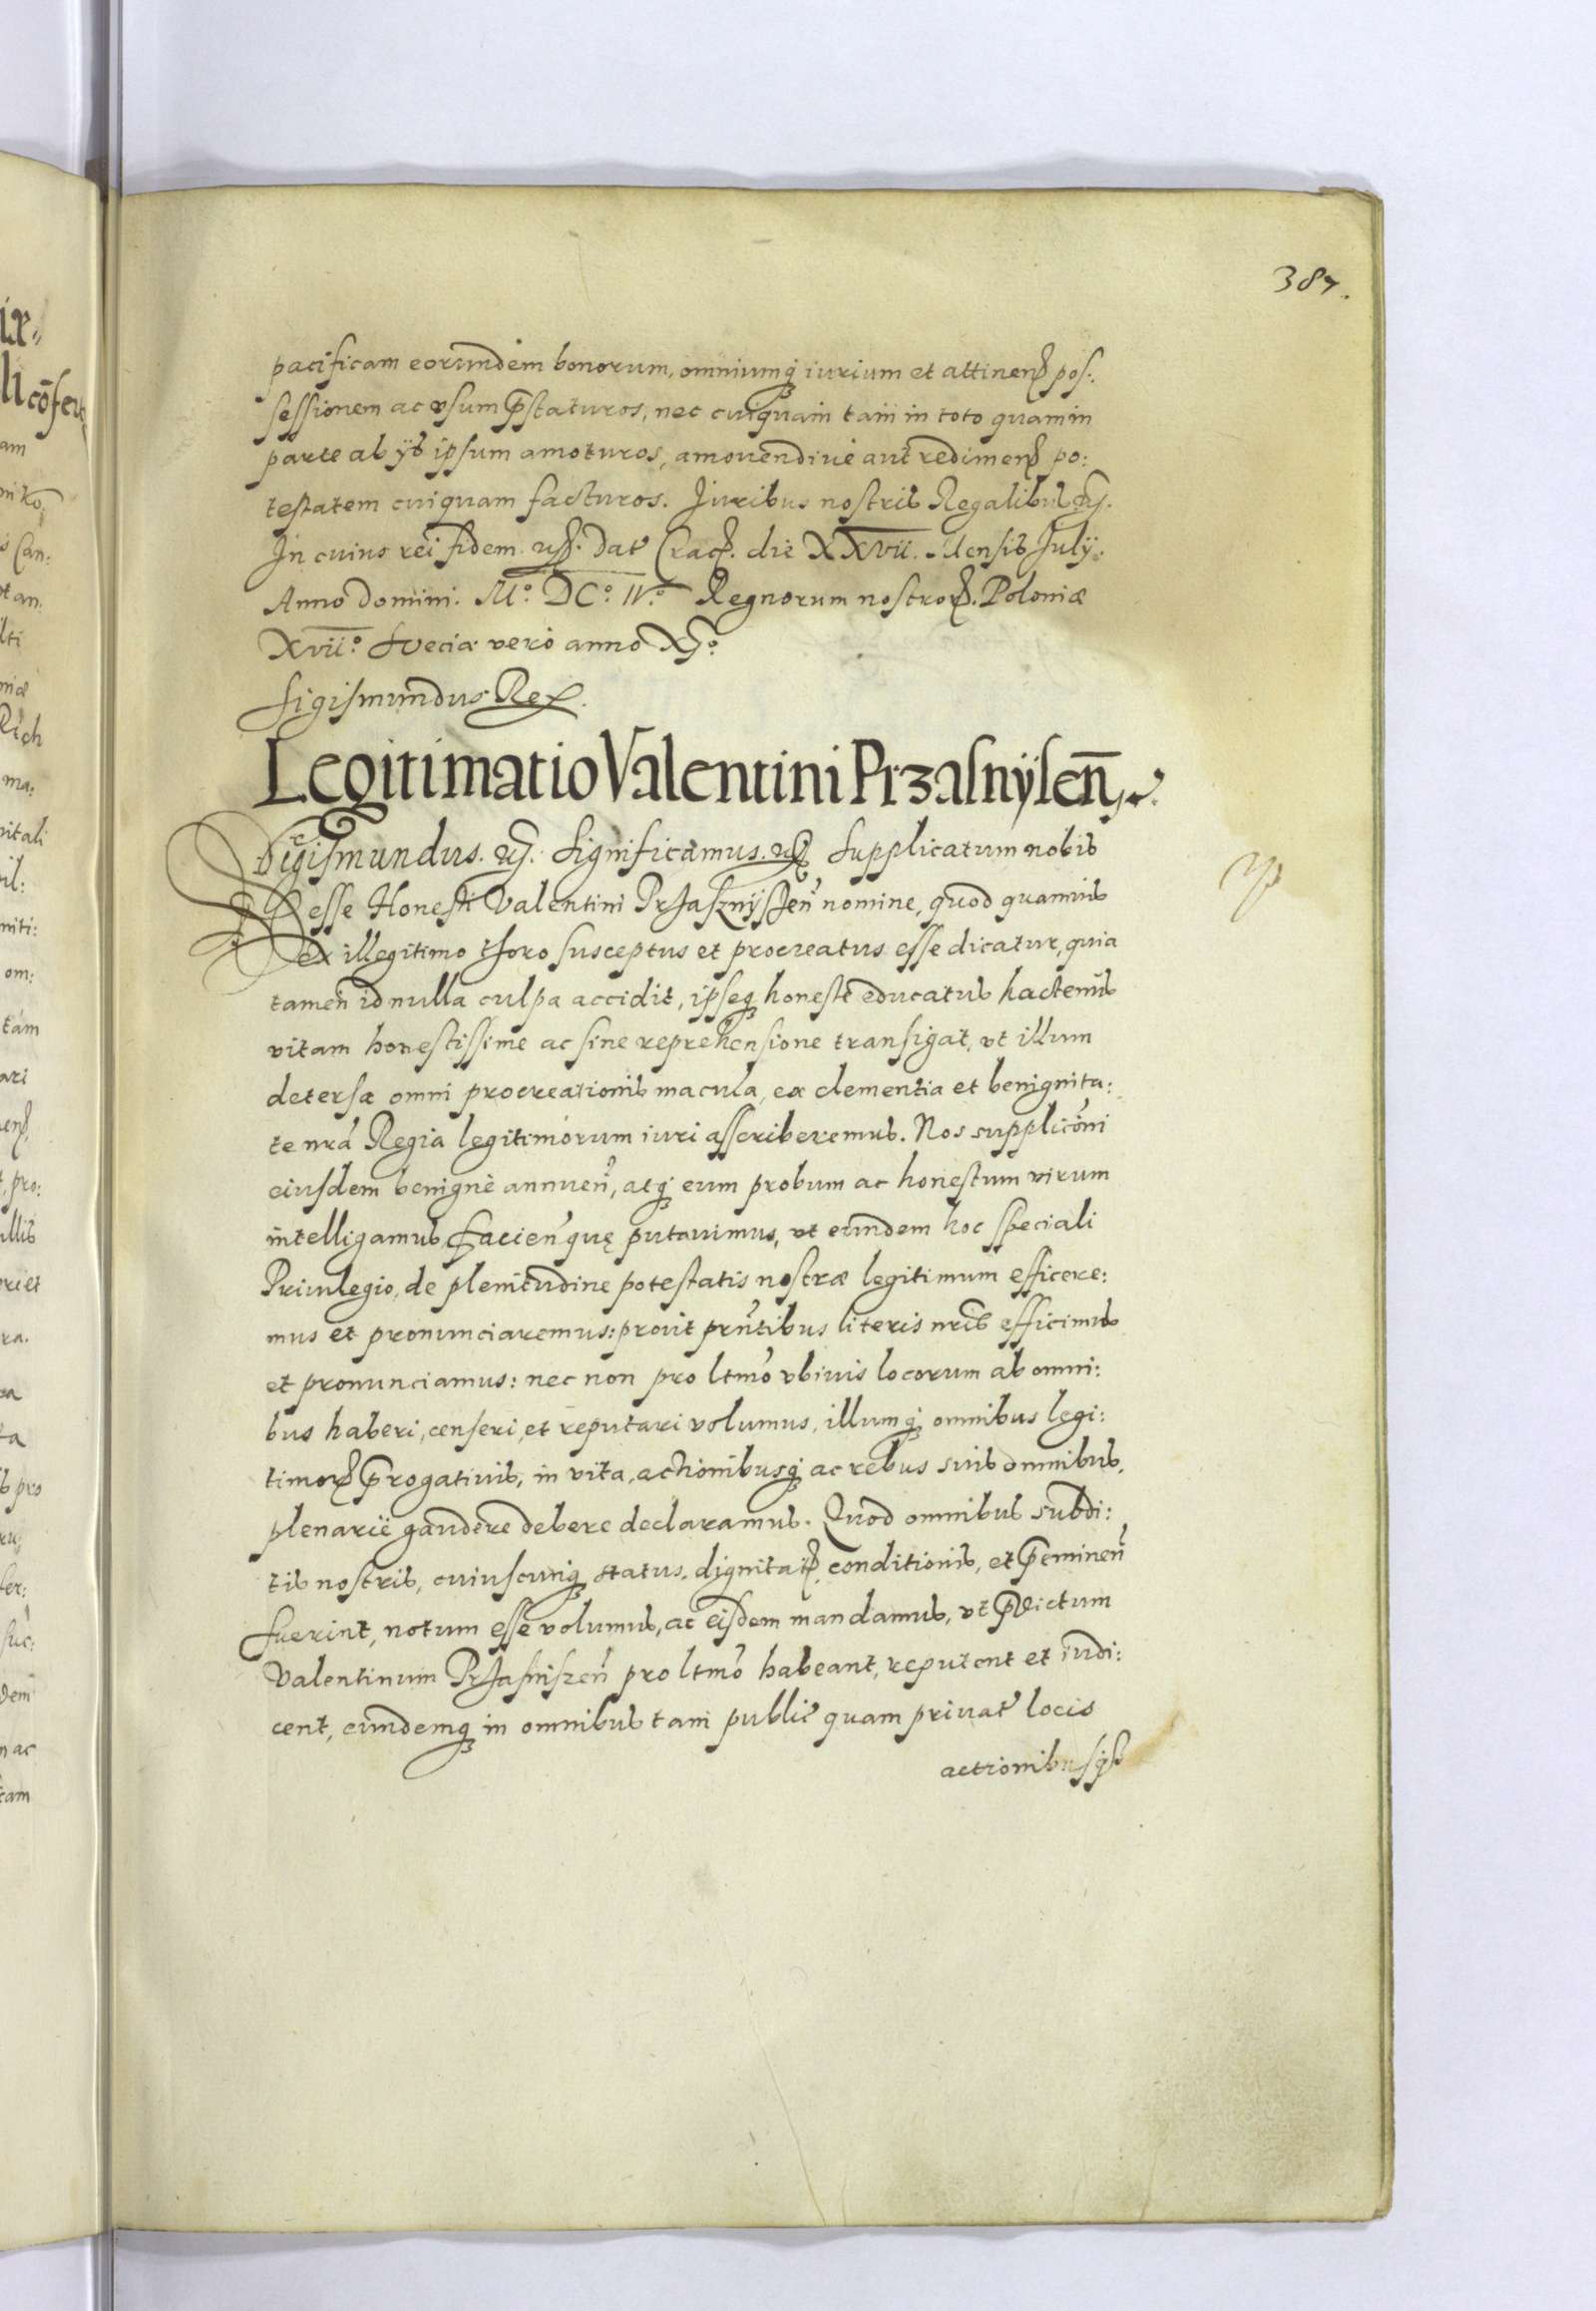 387.
pacificam eorundem bonorum, omniumq̨ iurium et attinen̄ pos:
sessionem ac vsum p̄staturos, nec cuiquam tam in toto quam in
parte ab ijs ipsum amoturos, amouendiue aut redimen̄ po:
testatem cuiquam facturos. Iuribus nostris Regalibus etc.
In cuius rei fidem etc. Dat Crac. die XXVII. Mensis Julij.
Anno Domini. Mº. DCº. IVº. Regnorum nostror. Poloniæ
XVIIº. Sueciæ vero anno XIº.
Sigismundus Rex.
Legitimatio Valentini Przasnÿsen̄
Sigismundus. etc. Significamus. etc. Supplicatum nobis
esse Honesti Valentini Przasznÿszen̄ nomine, quod quamuis
ex illegitimo thoro susceptus et procreatus esse dicatur, quia
tamen id nulla culpa accidit, ipseq̨ honestè educatus hactenus
vitam honestissime ac sine reprehensione transigat, vt illum
detersa omni procreationis macula, ex clementia et benignita:
te nrā Regia legitimorum iuri asscriberemus. Nos supplicōni
eiusdem benignè annuen̄, atq̨ eum probum ac honestum virum
intelligamus, facien̄que putauimus, vt eundem hoc speciali
Priuilegio, de plenitudine potestatis nostræ legitimum efficere:
mus et pronunciaremus: prout prn̄tibus literis nrīs efficimus
et pronunciamus: nec non pro ltmō vbiuis locorum ab omni:
bus haberi, censeri, et reputari volumus, illumq̨ omnibus legi:
timor p̄rogatiuis, in vita, actionibusq̨ ac rebus suis omnibus,
plenariè gaudere debere declaramus. Quod omnibus subdi:
tis nostris, cuiuscunq̨ status, dignitatis, conditionis, et p̄eminen̄
fuerint, notum esse volumus, ac eisdem mandamus, vt p̄dictum
Valentinum Przasniszen̄ pro ltmō habeant, reputent et iudi:
cent, eundemq̨ in omnibus tam public̄ quam priuat̄ locis
actionibusq̨